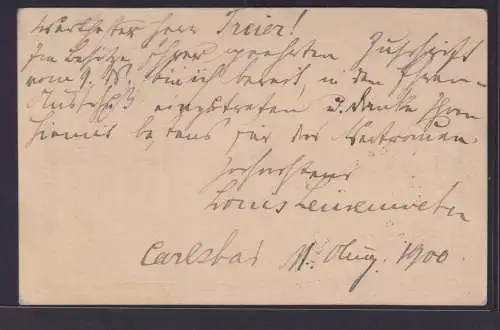 Werthester Herr Treier!
Im Besitze Ihrer geehrten Zuschrift
vom 9. ds. bin ich bereit, in den Ehren-
Ausschuß einzutreten u. danke Ihnen
hiemit bestens für das Vertrauen.
Hochachtend
Louis Leinenweber
Carlsbad 11. Aug. 1900